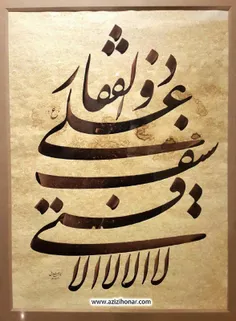 ذوالفقار
علی
سیف
فتی
لا الا لا الا
www.azizihonar.com